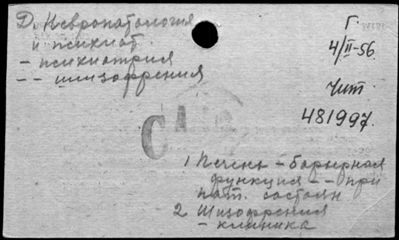 Д. Невропатология
и психиат.
– психиатрия
– – шизофрения
Г.
4/II-56.
Чит.
481997.
С А
1 Печень – барьерная
функция – – при
пат. состоян
2 Шизофрения
– клиника